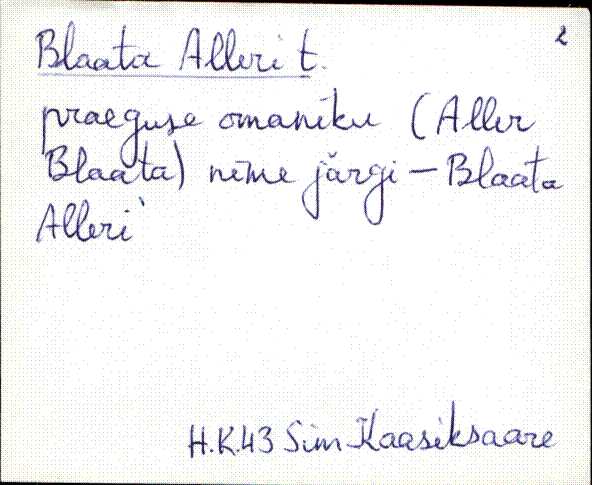 2
Blaata Alleri t.
praeguse omaniku (Aller
Blaata) nime järgi – Blaata
Alleri`
H.K.43 Sim Kaasiksaare